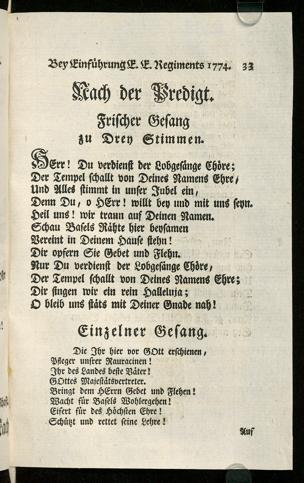 Bey Einführung E. E. Regiments 1774. 33
Nach der Predigt.
Frischer Gesang
zu Drey Stimmen.
HErr! Du verdienst der Lobgesänge Chöre;
Der Tempel schallt von Deines Namens Ehre,
Und Alles stimmt in unser Jubel ein,
Denn Du, o HErr! willt bey und mit uns seyn.
Heil uns! wir traun auf Deinen Namen.
Schau Basels Räthe hier beysamen
Vereint in Deinem Hause stehn!
Dir opfern Sie Gebet und Flehn.
Nur Du verdienst der Lobgesänge Chöre,
Der Tempel schallt von Deines Namens Ehre;
Dir singen wir ein rein Halleluja;
O bleib uns stäts mit Deiner Gnade nah!
Einzelner Gesang.
Die Ihr hier vor GOtt erschienen,
Pfleger unsrer Rauracinen!
Ihr des Landes beste Väter!
GOttes Majestätsvertreter.
Bringt dem HErrn Gebet und Flehen!
Wacht für Basels Wohlergehen!
Eifert für des Höchsten Ehre!
Schützt und rettet seine Lehre!
Auf